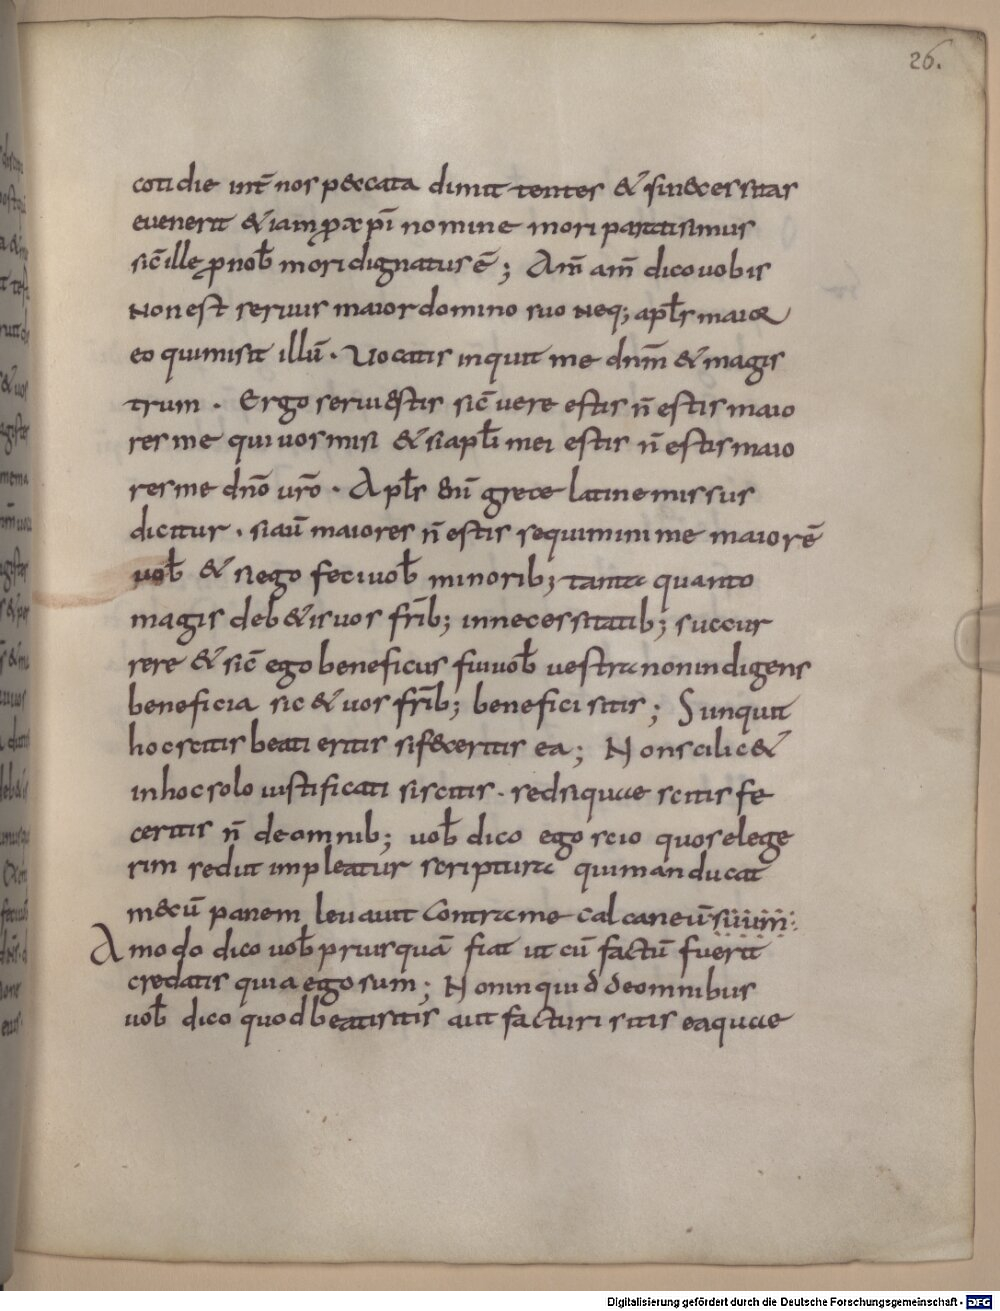 26.
cotidie int̄ nos peccata dimittentes & si necessitas
evenerit & iam ꝓ xp̄i nomine mori parati simus
sic̄ ille ꝓ nob̄ mori dignatus ē; Am̄ am̄ dico vobis
Non est servus maior domino suo neq; apl̄s maior
eo qui misit illū · Vocatis inquit me dnm̄ & magis
trum · Ergo servi estis sic̄ vere estis n̄ estis maio
res me qui vos misi & si apl̄i mei estis n̄ estis maio
res me dnō vrō · Apl̄s eni᷒ grece latine missus
dicitur · si aū maiores n̄ estis sequimini me maiorē
vob̄ & si ego feci vob̄ minorib; tanta quanto
magis deb&is vos frīb; in necessitatib; succur
rere & sic̄ ego beneficus fui vob̄ vestra non indigens
beneficia sic & vos frīb; benefici sitis; S inquit
hoc scitis beati eritis si feceritis ea; Non scilic&
in hoc solo iustificati si scitis · sed si quae scitis fe
ceritis n̄ de omnib; vob̄ dico ego scio quos elege
rim sed ut impleatur scriptura qui manducat
mecū panem levavit contra me calcaneū suum:
A modo dico vob̄ priusquā fiat ut cū factū fuerit
credatis quia ego sum; Non inquid de omnibus
vob̄ dico quod beati sitis aut facturi sitis ea quae
Digitalisierung gefördert durch die Deutsche Forschungsgemeinschaft - DFG